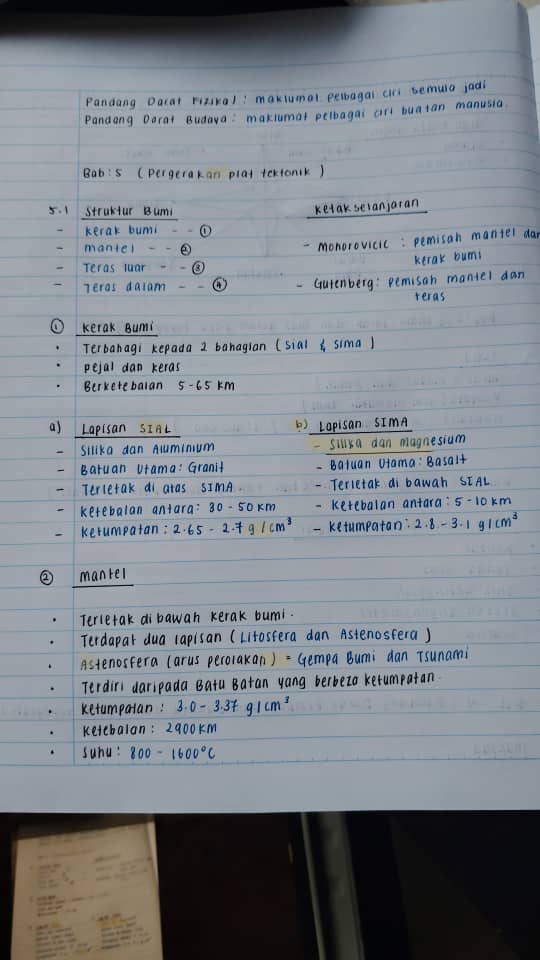 Pandang Darat Fizikal : maklumat pelbagai ciri semula jadi
Pandang Darat Budaya : maklumat pelbagai ciri buatan manusia.
Bab : 5 ( Pergerakan plat tektonik )
5.1 Struktur Bumi
- kerak bumi - - ①
- mantel - - ②
- Teras luar - - ③
- Teras dalam - - ④
Ketakselanjaran
- Mohorovicic : pemisah mantel dan
kerak bumi
- Gutenberg : pemisah mantel dan
teras
① Kerak Bumi
• Terbahagi kepada 2 bahagian ( Sial & Sima )
• pejal dan keras
• Berketebalan 5-65 km
a) Lapisan SIAL
- Silika dan Aluminium
- Batuan Utama : Granit
- Terletak di atas SIMA.
- Ketebalan antara : 30 - 50 km
- Ketumpatan : 2.65 - 2.7 g/cm³
b) Lapisan SIMA
- Silika dan Magnesium
- Batuan Utama : Basalt
- Terletak di bawah SIAL.
- Ketebalan antara : 5 - 10 km
- Ketumpatan : 2.8 - 3.1 g/cm³
② mantel
• Terletak di bawah kerak bumi.
• Terdapat dua lapisan ( Litosfera dan Astenosfera )
• Astenosfera (arus perolakan) = Gempa Bumi dan Tsunami
• Terdiri daripada Batu Batan yang berbeza ketumpatan.
• Ketumpatan : 3.0 - 3.37 g/cm³
• Ketebalan : 2900 km
• Suhu : 800 - 1600°C